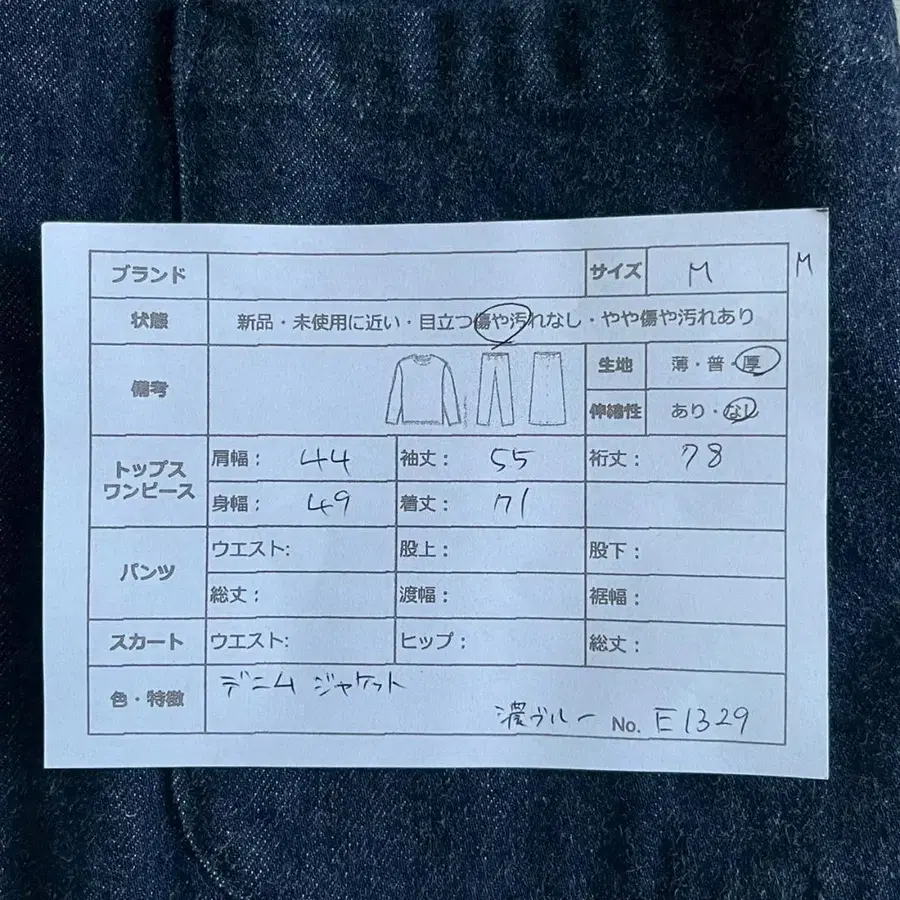 ブランド サイズ M M
状態 新品・未使用に近い・目立つ傷や汚れなし・やや傷や汚れあり
備考 生地 薄・普・厚
伸縮性 あり・なし
トップス
ワンピース
肩幅： 44 袖丈： 55 裄丈： 78
身幅： 49 着丈： 71
パンツ
ウエスト: 股上： 股下：
総丈： 渡幅： 裾幅：
スカート ウエスト: ヒップ： 総丈：
色・特徴 デニム ジャケット
濃ブルー No. E1329